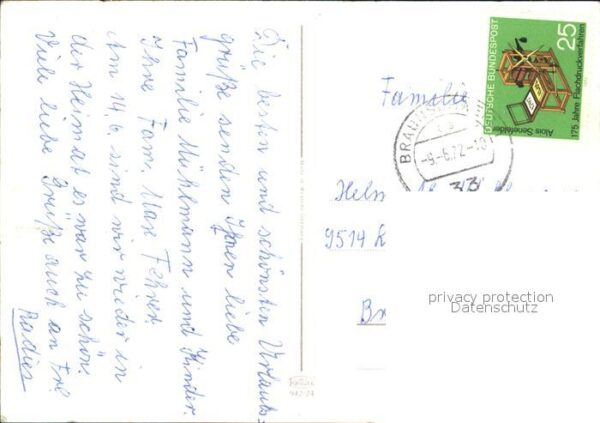 Die besten und schönsten Urlaubs-
grüße senden Ihnen liebe
Familie Mühlmann und Kinder.
Ihre Fam. Max Fehrer
Am 14.6. sind wir wieder in
der Heimat es war zu schön.
Viele liebe Grüße auch an Frl.
Familie
Helm
9514 K
Br
BRAUN
-9.-6.72-18
DEUTSCHE BUNDESPOST
25
Alois Senefelder
175 Jahre Flachdruckverfahren
privacy protection
Datenschutz